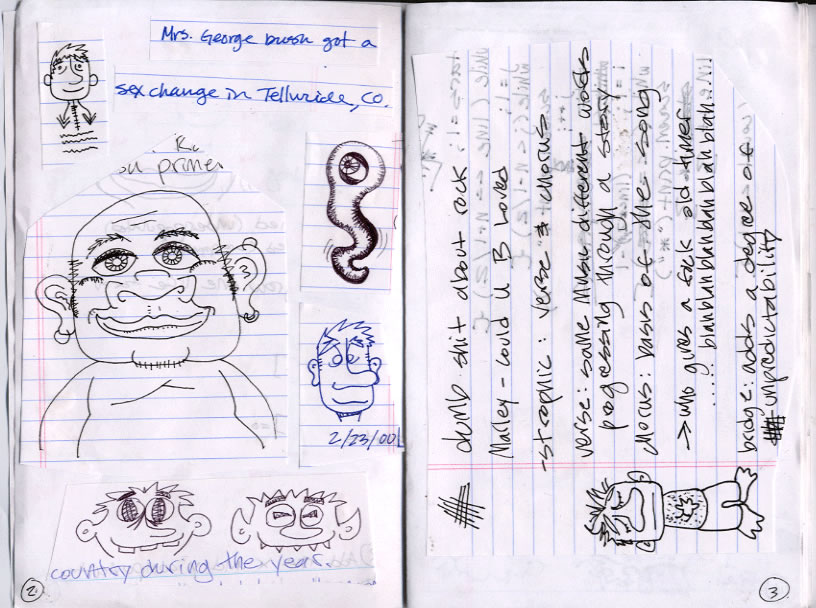 Mrs. George bush got a
sex change in Telluride, CO.
primer
2/23/00
country during the year.
2
dumb shit about rock
Marley - could U B Loved
-strophic: verse & chorus
verse: same music different words
progressing through a story
chorus: basis of the song
→ who gives a fuck old timer
..... blah blah blah blah blah blah....
bridge: adds a degree of
unpredictability
3